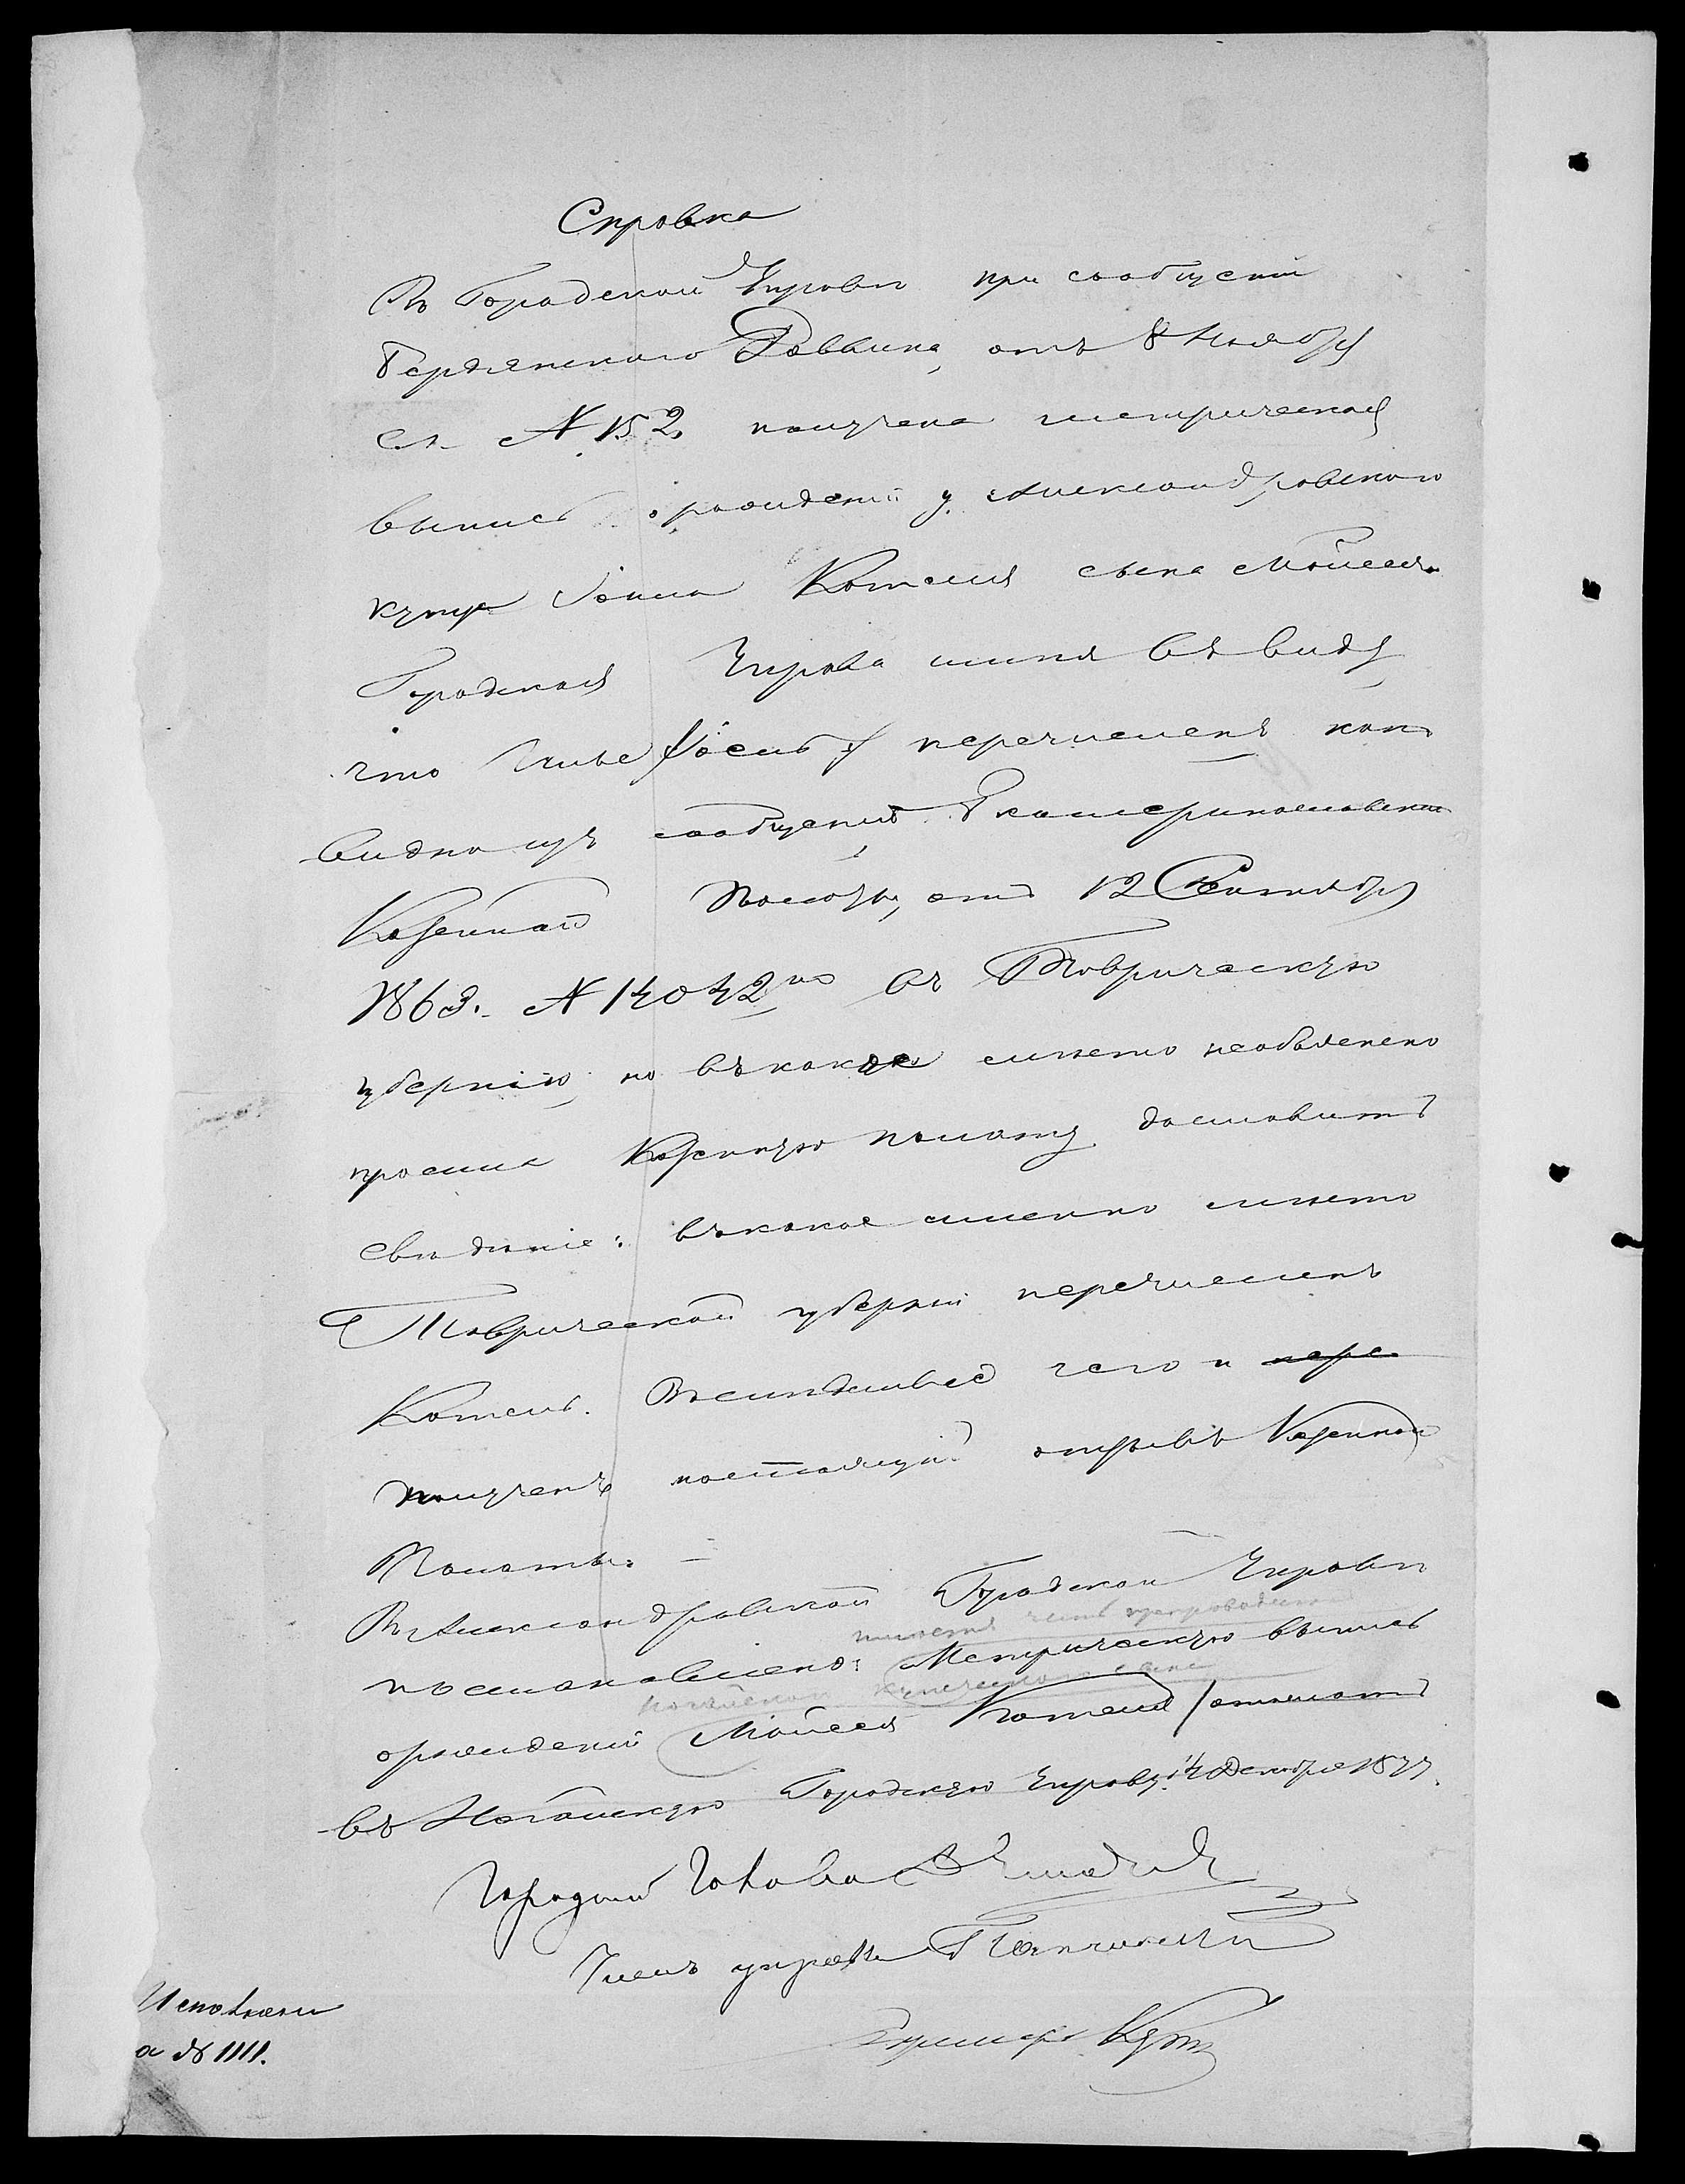 Справка
Въ Городской Управѣ при сообщеніи
Бердянскаго Раввина, отъ 8 Ноября
с.г. № 152, получена метрическая
выпись о рожденіи у Александровскаго
купца Іоеля Котеля сына Мойсея.
Городская Управа имѣя въ виду,
что Іоель перечисленъ какъ
видно изъ сообщенія Екатеринославской
Казенной Палаты, отъ 12 Сентября
1863. № 14042мъ въ Таврическую
губернію, но въ какое мѣсто необъяснено
просила Казенную палату доставить
свѣдѣніе: въ какое именно мѣсто
Таврической губерніи перечисленъ
Котель. Вслѣдствіе чего и пере-
полученъ настоящій отзывъ Казенной
Палаты. —
Въ Александровской Городской Управѣ
постановлено: Метрическую выпись
о рожденіи Мойсея Котеля отослать
въ Ногайскую Городскую Управу. 14 Декабря 1877.
Городской Голова
Членъ управы
Исполнено
за № 1111.